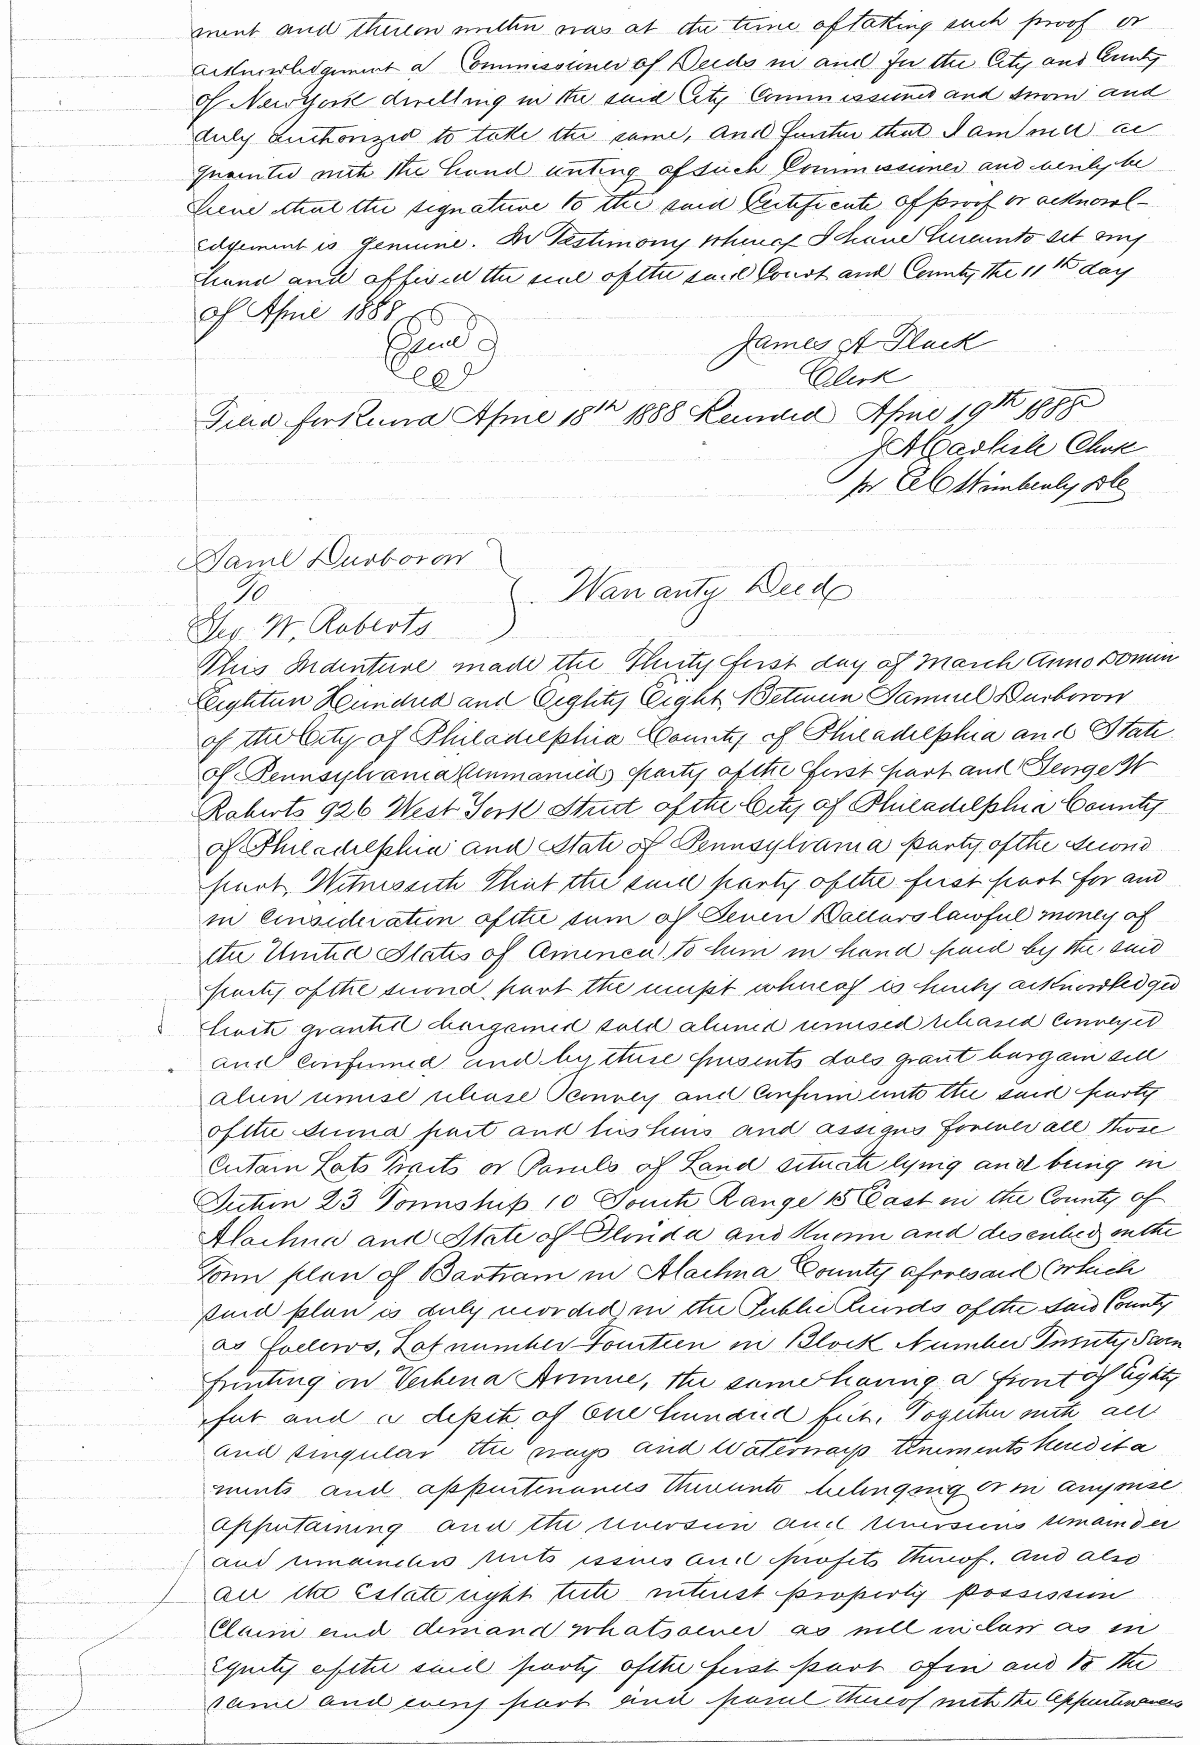 ment and thereon written was at the time of taking such proof or
acknowledgement a Commissioner of Deeds in and for the City and County
of New York dwelling in the said City Commissioned and sworn and
duly authorized to take the same, and further that I am well ac
quainted with the hand writing of such Commissioner and verily be
lieve that the signature to the said Certificate of proof or acknowl-
edgement is genuine. In Testimony whereof I have hereunto set my
hand and affixed the seal of the said Court and County the 11th day
of April 1888
Seal
James A Flack
Clerk
Filed for Record April 18th 1888 Recorded April 19th 1888
J A Carlisle Clerk
pr C Wimberly DC
Saml Durborow
To
Geo. W. Roberts
Warranty Deed
This Indenture made the Thirty first day of March Anno Domini
Eighteen Hundred and Eighty Eight, Between Samuel Durborow
of the City of Philadelphia County of Philadelphia and State
of Pennsylvania (unmarried) party of the first part and George W
Roberts 926 West York Street of the City of Philadelphia County
of Philadelphia and State of Pennsylvania party of the second
part, Witnesseth That the said party of the first part for and
in consideration of the sum of Seven Dollars lawful money of
the United States of America to him in hand paid by the said
party of the second part the receipt whereof is hereby acknowledged
hath granted bargained sold aliened remised released conveyed
and confirmed and by these presents does grant bargain sell
alien remise release convey and confirm unto the said party
of the second part and his heirs and assigns forever all those
Certain Lots Tracts or Parcels of Land situate lying and being in
Section 23 Township 10 South Range 18 East in the County of
Alachua and State of Florida and known and described on the
Town plan of Bartram in Alachua County aforesaid (which
said plan is duly recorded) in the Public Records of the said County
as follows, Lot number Fourteen in Block Number Twenty Seven
fronting on Verbena Avenue, the same having a front of Eighty
feet and a depth of One hundred feet. Together with all
and singular the ways and waterways tenements heredita
ments and appurtenances thereunto belonging or in anywise
appertaining and the reversion and reversions remainder
and remainders rents issues and profits thereof. and also
all the Estate right title interest property possession
Claim and demand whatsoever as well in law as in
Equity of the said party of the first part of in and to the
same and every part and parcel thereof with the appurtenances